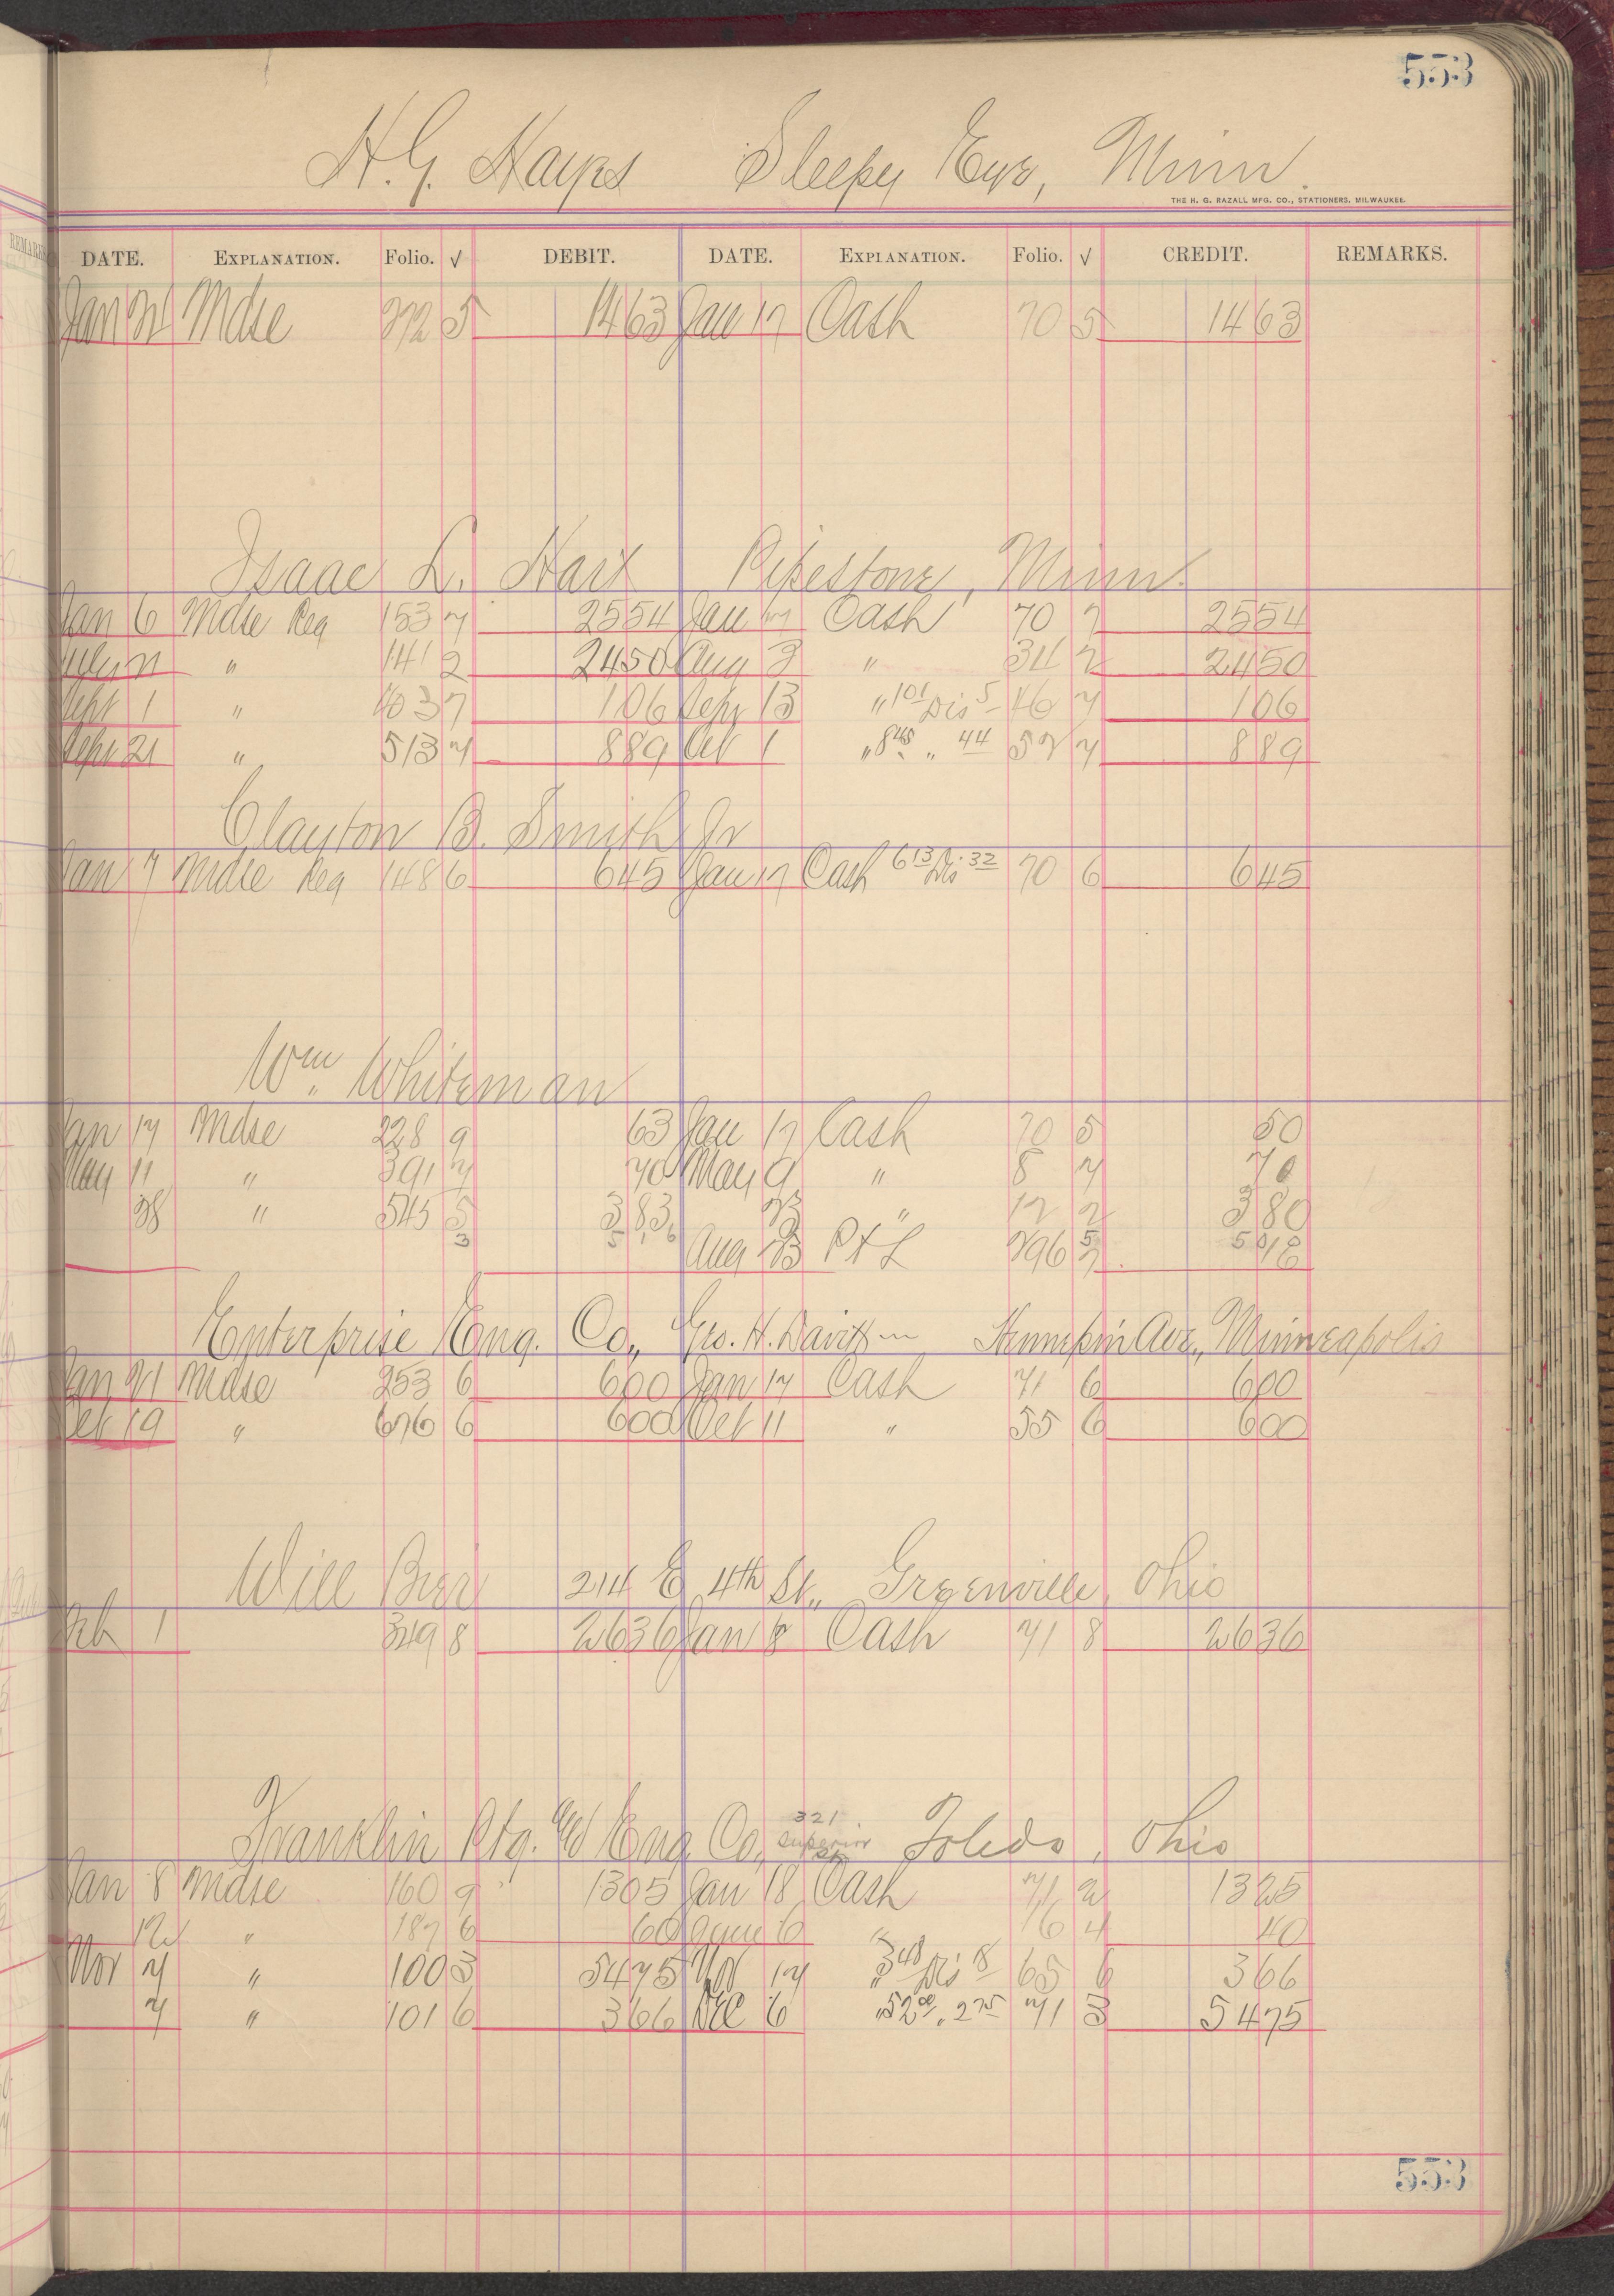 553
H. G. Hayes Sleepy Eye, Minn.
THE H. G. RAZALL MFG. CO., STATIONERS, MILWAUKEE.
REMARKS
DATE. EXPLANATION. Folio. √ DEBIT. DATE. EXPLANATION. Folio. √ CREDIT. REMARKS.
Jan Mdse 272 5 14 63 Jan 17 Cash 70 5 14 63
Isaac L. Hart Pipestone, Minn.
Jan 6 Mdse Reg 153 7 25 54 Jan 17 Cash 70 7 25 54
" 141 2 24 50 Aug 3 " 34 2 24 50
Sept 1 " 403 7 1 06 Sept 13 " 1 01 Dis 5 46 7 1 06
Sept 21 " 513 7 8 89 Oct 1 " 8 45 " 44 52 7 8 89
Clayton B. Smith Jr
Jan 7 Mdse Reg 148 6 6 45 Jan 17 Cash 6 13 Dis 32 70 6 6 45
Wm. Whiteman
Jan 17 Mdse 228 9 63 Jan 17 Cash 70 5 50
May 11 " 391 7 70 May 9 " 8 7 70
28 " 545 5 3 83 23 " 12 2 3 80
3 5 16 Aug 23 P & L 296 5 18
Enterprise Eng. Co., Geo. H. Hennepin Ave., Minneapolis
Jan 21 Mdse 253 6 6 00 Jan 17 Cash 71 6 6 00
Oct 19 " 676 6 6 00 Oct 11 " 55 6 6 00
Will Bier 214 E 4th St., Greenville, Ohio
Feb 1 349 8 26 36 Jan 18 Cash 71 8 26 36
Franklin Ptg. & Eng. Co., 321 Superior St Toledo, Ohio
Jan 8 Mdse 160 9 13 05 Jan 18 Cash 71 2 13 25
12 " 187 6 60 June 6 " 16 4 40
Nov 7 " 100 3 54 75 Nov 17 " 3 48 Dis 18 65 6 3 66
7 " 101 6 3 66 Dec 6 " 52 00 " 2 75 71 3 54 75
553